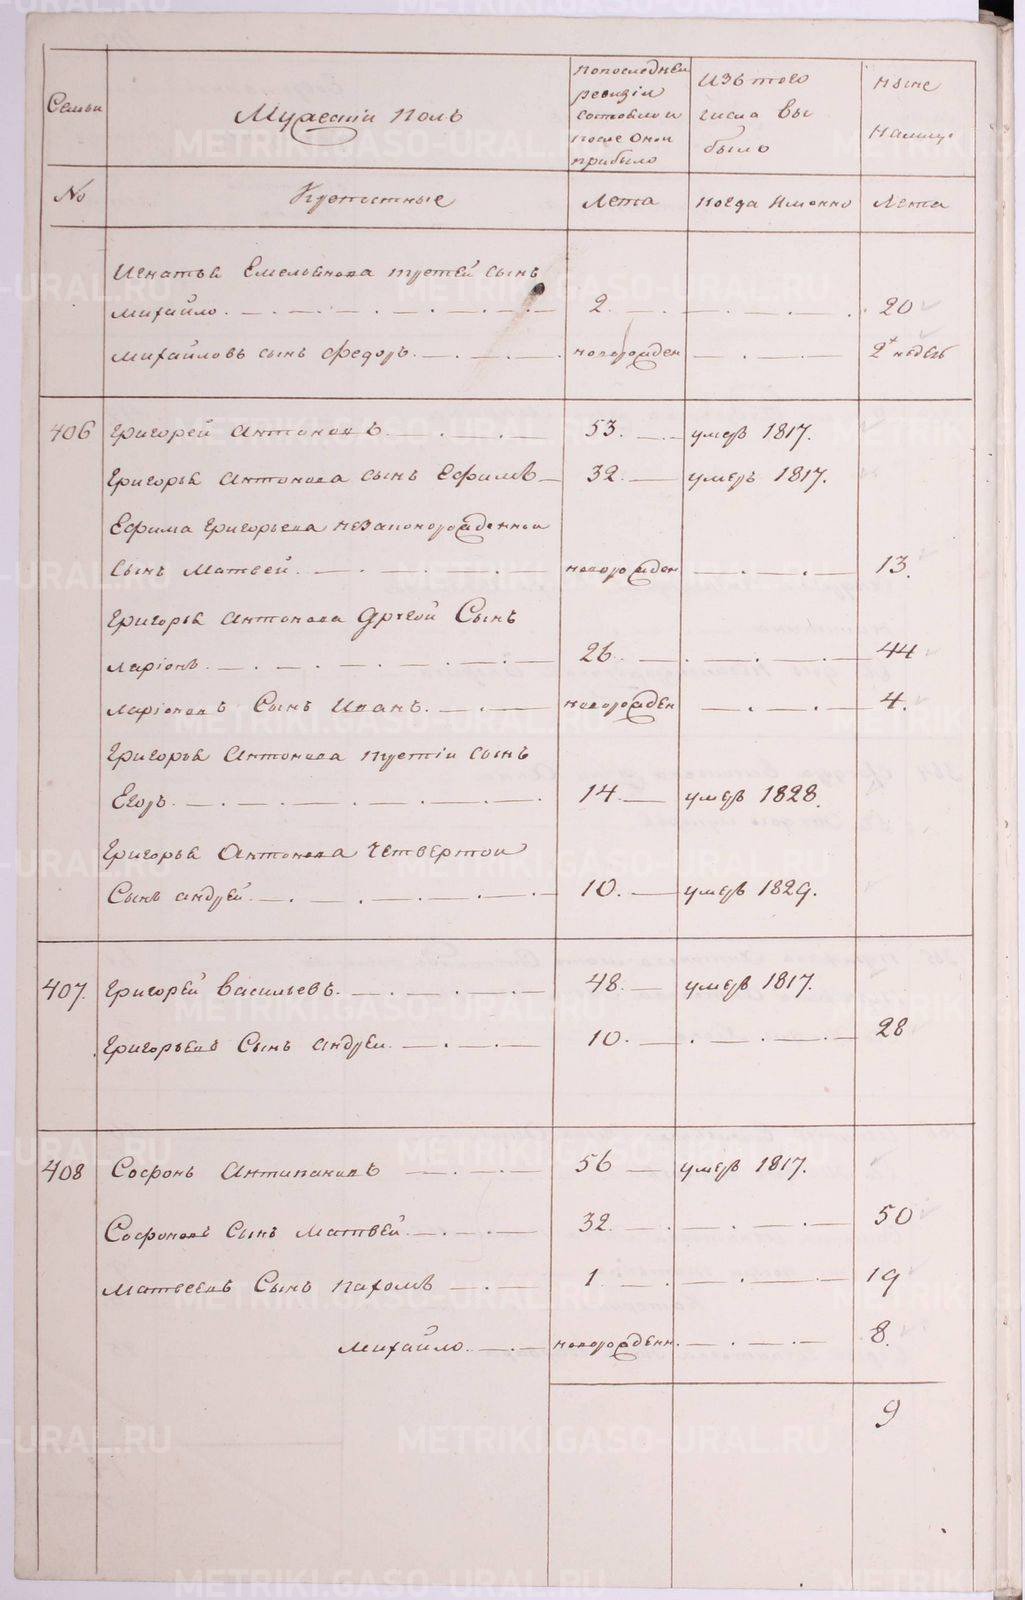 Семьи
Мужескій полъ
попоследней
ревизіи
состояло и
после оной
прибыло
Изъ того
числа вы
было
ныне
налицо
№
Крепостные
Лета
когда именно
Лета
Игнатья Емельянова третей сынъ
михайло 2 20
михайловъ сынъ федоръ новорожден 2 недель
406 григорей антоновъ 53. умеръ 1817.
григорья антонова сынъ Ефимъ 32. умеръ 1817.
Ефима григорьева незаконорожденный
сынъ матвей новорожден 13.
григорья антонова другой Сынъ
ларіонъ 26 44
ларіоновъ Сынъ иванъ новорожден 4.
григорья антонова третіи сынъ
Егоръ 14 умеръ 1828.
григорья антонова четвертои
Сынъ андрей 10. умеръ 1829.
407. григорей васильевъ 48. умеръ 1817.
григорьевъ Сынъ андреи 10. 28
408 Софонъ антипановъ 56 умеръ 1817.
Софоновъ Сынъ матвей 32. 50
матвеевъ Сынъ пахомъ 1 19
михайло новорожденн. 8.
9
METRIKI.GASO-URAL.RU